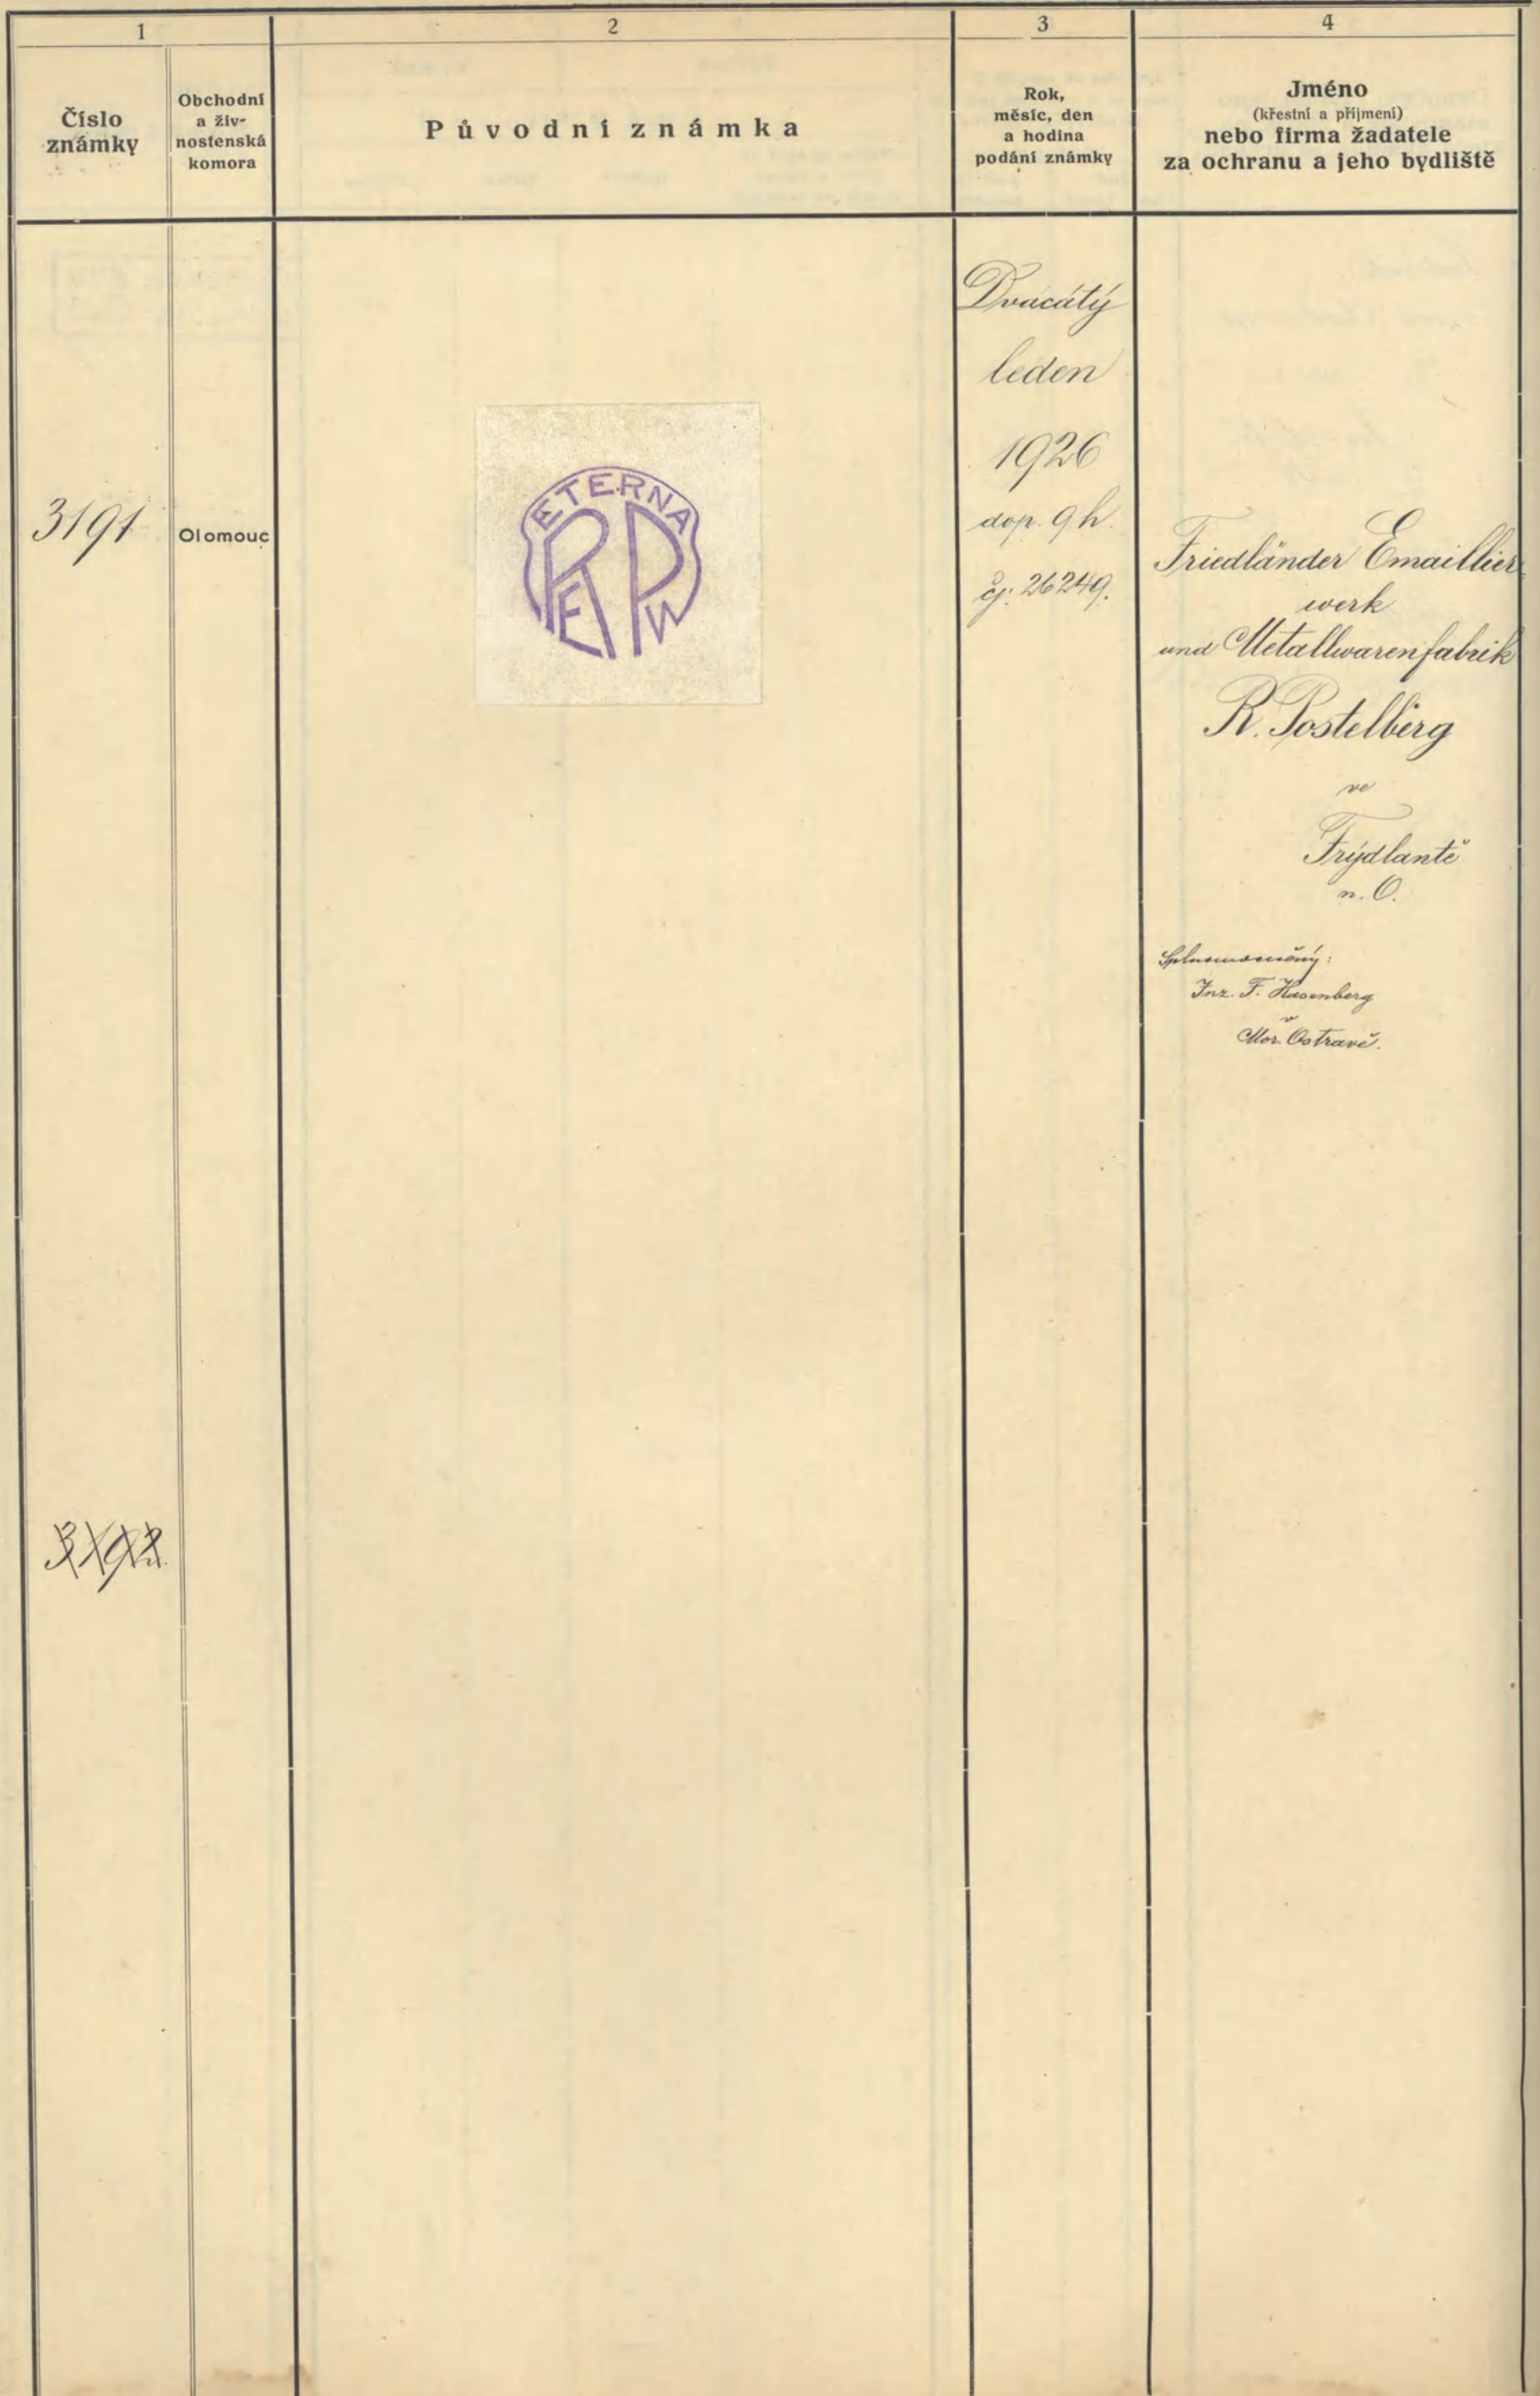 1
2
3
4
Číslo
známky
Obchodní
a živ-
nostenská
komora
Původní známka
Rok,
měsíc, den
a hodina
podání známky
Jméno
(křestní a příjmení)
nebo firma žadatele
za ochranu a jeho bydliště
3191
Olomouc
ETERNA
R P
E W
Dvacátý
leden
1926
dop. 9 h.
čj. 26249.
Friedländer Emaillier
werk
und Metallwarenfabrik
R. Postelberg
ve
Frýdlantě
n. O.
Splnomocněný:
Inz. F. Hasenberg
v
Mor. Ostravě.
3192